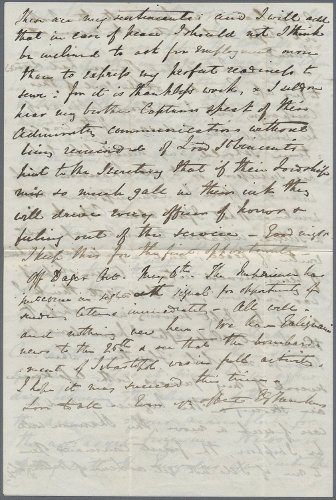 These are my sentiments and I will add
that in case of peace I should not I think
be inclined to ask for employment more
than to express my perfect readiness to
serve: for it is thankless work, & I seldom
hear my brother Captains speak of their
Admiralty communications without
being reminded of Lord St Vincents
hint to the Secretary that if their Lordships
mix so much gall in their ink they
will drive every officer of honor &
feeling out of the service — Good night
I keep this for the first opportunity
Off Dager Ort. May 6th. The Imperieuse has
just come in sight with signal for opportunity of
sending letters immediately — All well —
and nothing new here — We have telegraphic
news to the 28th & see that the bombard-
ment of Sebastopol was in full activity.
I hope it may succeed this time —
Love to all Ever yr affect